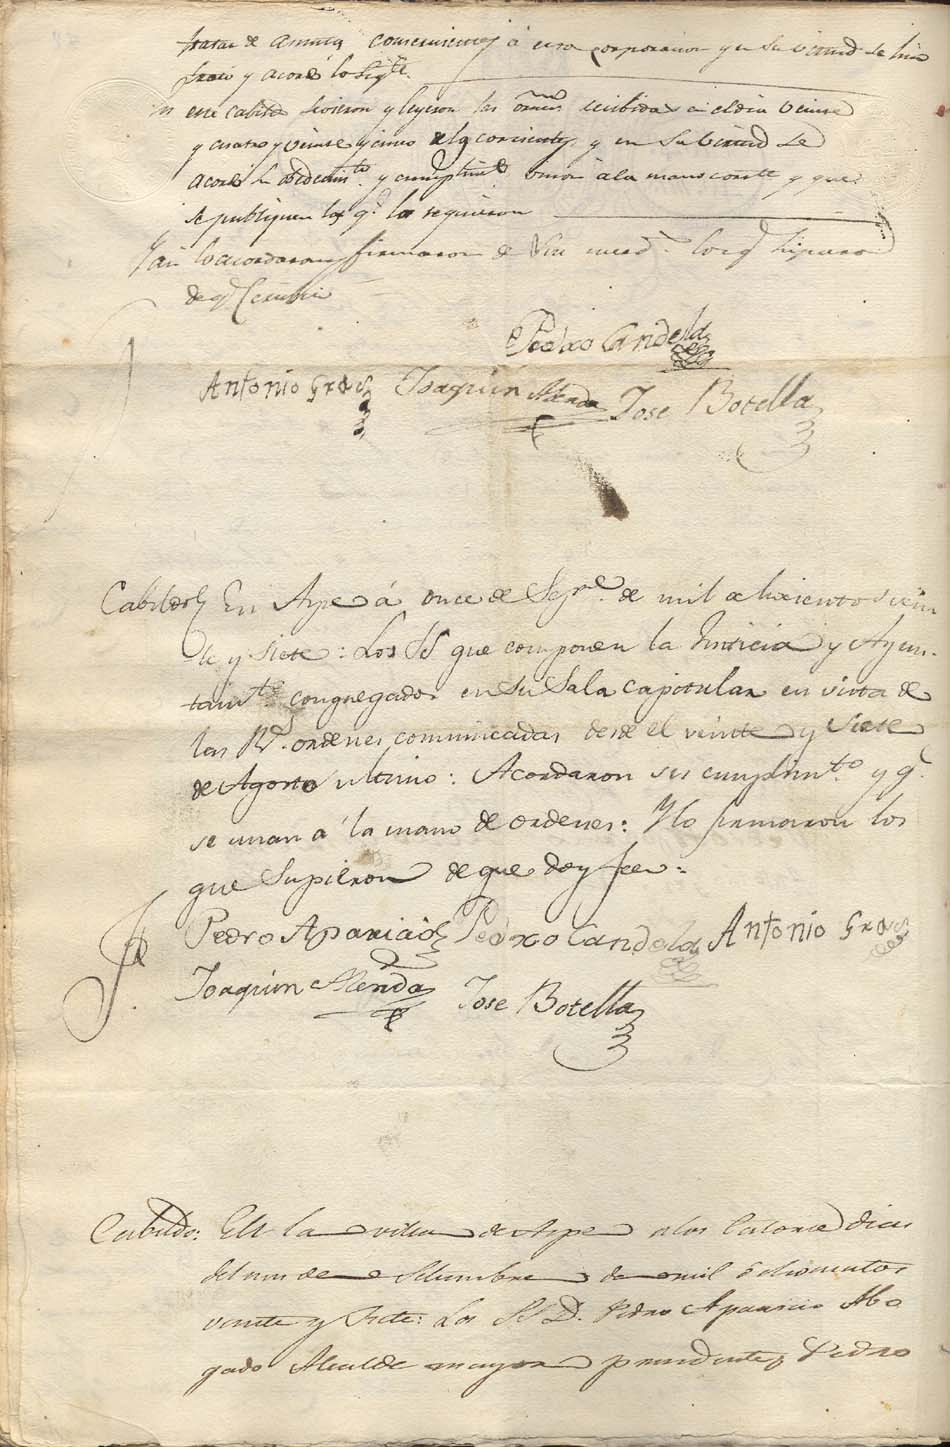 tratar de asuntos concernientes á esta corporacion y en su virtud se hizo
y acordó lo sigte.
En este cabildo se vieron y leyeron las ordenes recibidas en el dia veinte
y cuatro y veinte y cinco de los corrientes, y en su virtud se
acordó su obedecimto. y cumplimto. union á la mano corrte. y que
se publiquen las q. lo requieran
Y asi lo acordaron y firmaron de sus mercds. los q. supieron
de q. Certifico
Pedro Candela
Antonio Gras Joaquin Alenda Jose Botella
Cabildo En Aspe á once de Sepre. de mil ochocientos vein
te y siete: Los SS que componen la Justicia y Ayun-
tamto. congregados en su Sala capitular en vista de
las Rs. ordenes comunicadas desde el veinte y siete
de Agosto ultimo: Acordaron su cumplimto. y q.
se unan á la mano de ordenes: Y lo firmaron los
que supieron de que doy fee:
Pedro Aparicio Pedro Candela Antonio Gras
Joaquin Alenda Jose Botella
Cabildo: En la villa de Aspe a los Catorce dias
del mes de Setiembre de mil ochocientos
veinte y siete: Los SS D. Pedro Aparicio Abo
gado Alcalde mayor presidente, Pedro